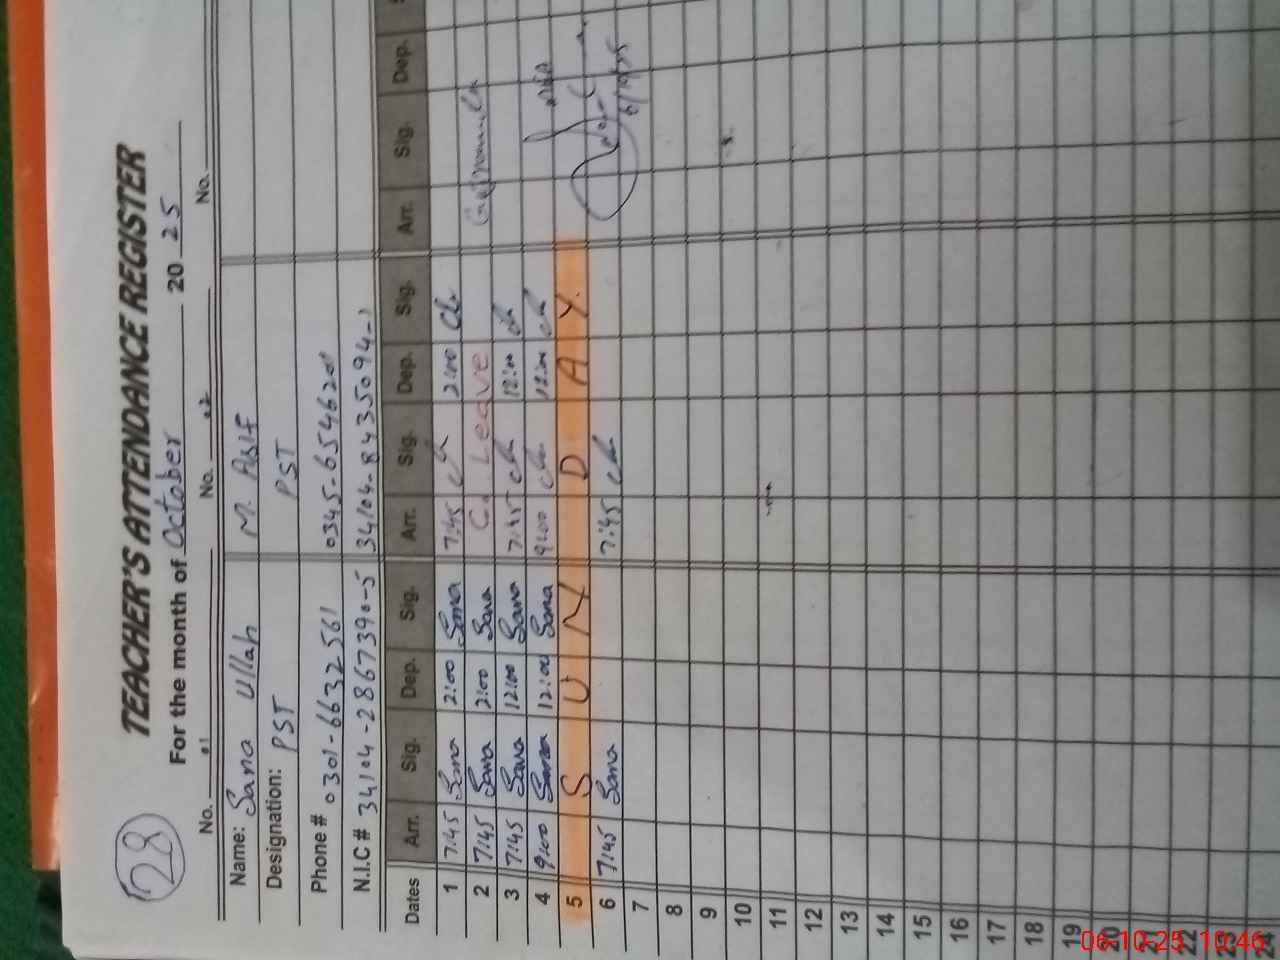 28
TEACHER'S ATTENDANCE REGISTER
For the month of October 20 25
No. 01 No. 02 No.
Name: Sana Ullah M. Asif
Designation: PST PST
Phone # 0301-6632561 0345-6546201
N.I.C # 34104-2867390-5 34104-8435094-1
Dates Arr. Sig. Dep. Sig. Arr. Sig. Dep. Sig. Arr. Sig. Dep.
1 7:45 Sana 2:00 Sana 7:45 2:00
2 7:45 Sana 2:00 Sana C. Leave
3 7:45 Sana 12:00 Sana 7:45 12:00
4 9:00 Sana 12:00 Sana 9:00 12:00
5 S U N D A Y.
6 7:45 Sana 7:45
7
8
9
10
11
12
13
14
15
16
17
18
19
20
21
22
23
24
06-10-25 10:46